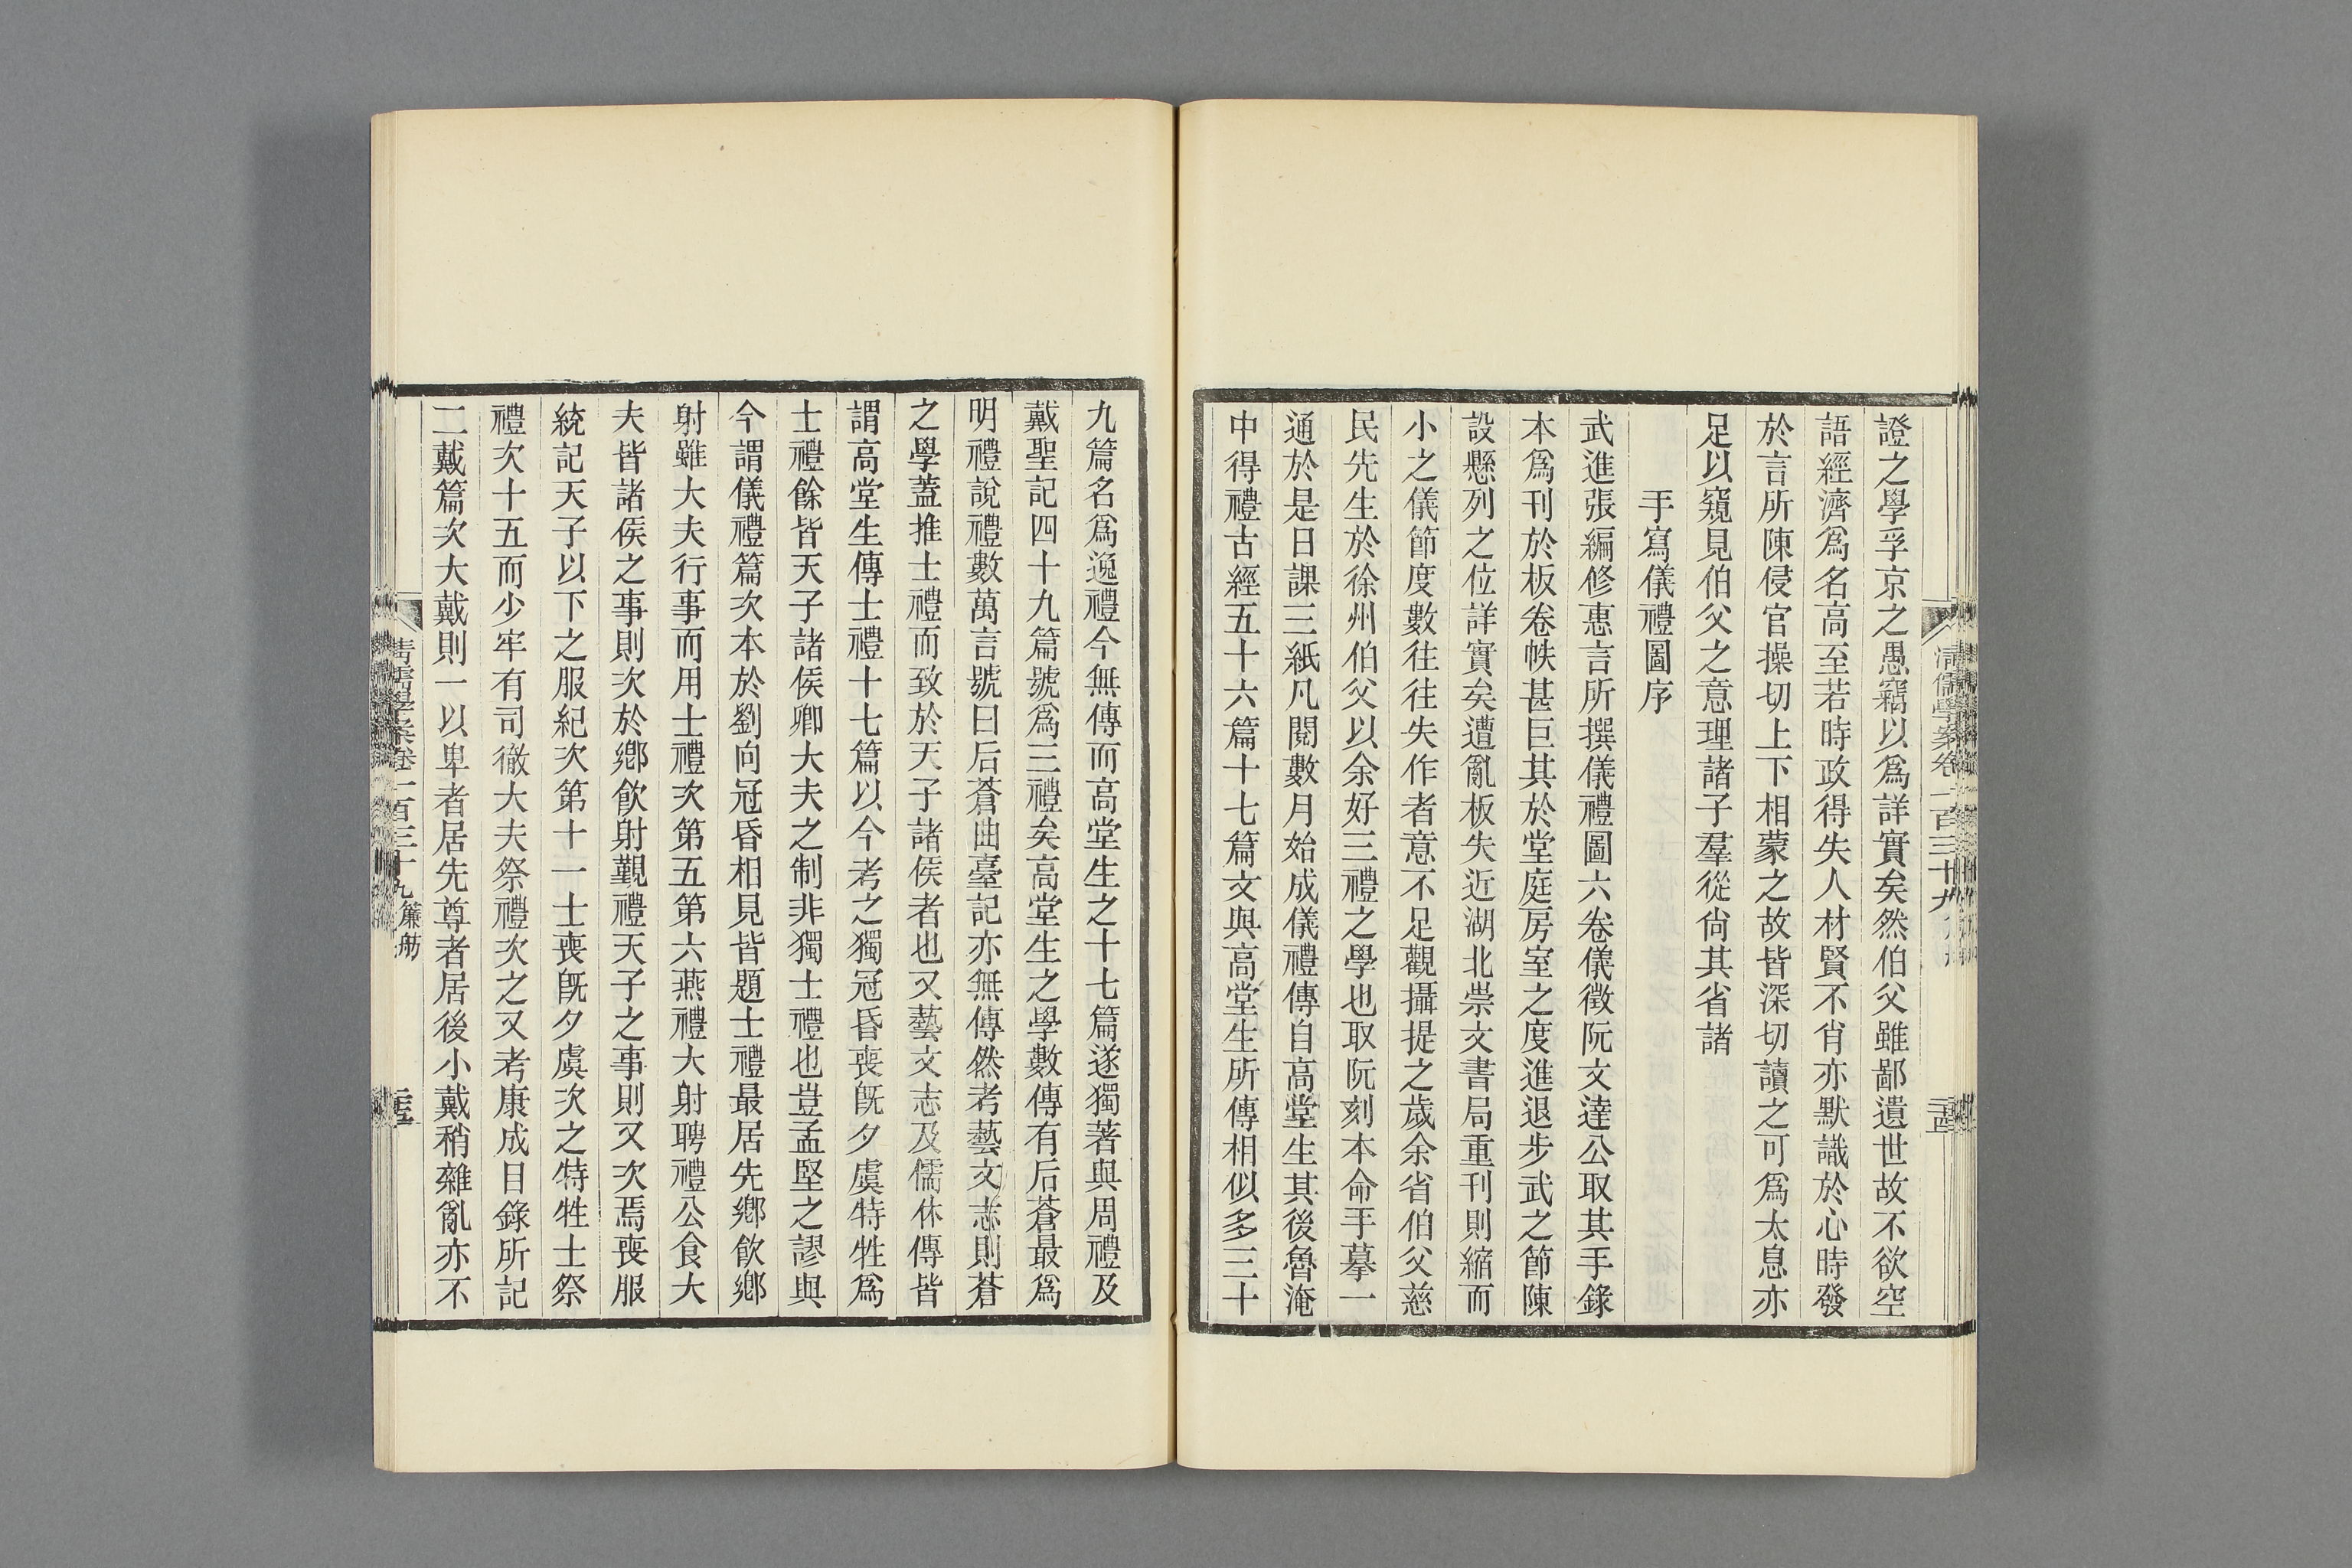 清儒學案卷一百三十九
證之學孚京之愚竊以爲詳實矣然伯父雖鄙遺世故不欲空
語經濟爲名高至若時政得失人材賢不肖亦默識於心時發
於言所陳侵官操切上下相蒙之故皆深切讀之可爲太息亦
足以窺見伯父之意理諸子羣從尙其省諸
手寫儀禮圖序
武進張編修惠言所撰儀禮圖六卷儀徵阮文達公取其手錄
本爲刊於板卷帙甚巨其於堂庭房室之度進退步武之節陳
設懸列之位詳實矣遭亂板失近湖北崇文書局重刊則縮而
小之儀節度數往往失作者意不足觀攝提之歲余省伯父慈
民先生於徐州伯父以余好三禮之學也取阮刻本命手摹一
通於是日課三紙凡閱數月始成儀禮傳自高堂生其後魯淹
中得禮古經五十六篇十七篇文與高堂生所傳相似多三十
九篇名爲逸禮今無傳而高堂生之十七篇遂獨著與周禮及
戴聖記四十九篇號爲三禮矣高堂生之學數傳有后蒼最爲
明禮說禮數萬言號曰后蒼曲臺記亦無傳然考藝文志則蒼
之學蓋推士禮而致於天子諸侯者也又藝文志及儒林傳皆
謂高堂生傳士禮十七篇以今考之獨冠昏喪旣夕虞特牲爲
士禮餘皆天子諸侯卿大夫之制非獨士禮也豈孟堅之謬與
今謂儀禮篇次本於劉向冠昏相見皆題士禮最居先鄉飮鄉
射雖大夫行事而用士禮次第五第六燕禮大射聘禮公食大
夫皆諸侯之事則次於鄉飮射覲禮天子之事則又次焉喪服
統記天子以下之服紀次第十一士喪旣夕虞次之特牲士祭
禮次十五而少牢有司徹大夫祭禮次之又考康成目錄所記
二戴篇次大戴則一以卑者居先尊者居後小戴稍雜亂亦不
清儒學案卷一百三十九 簾舫